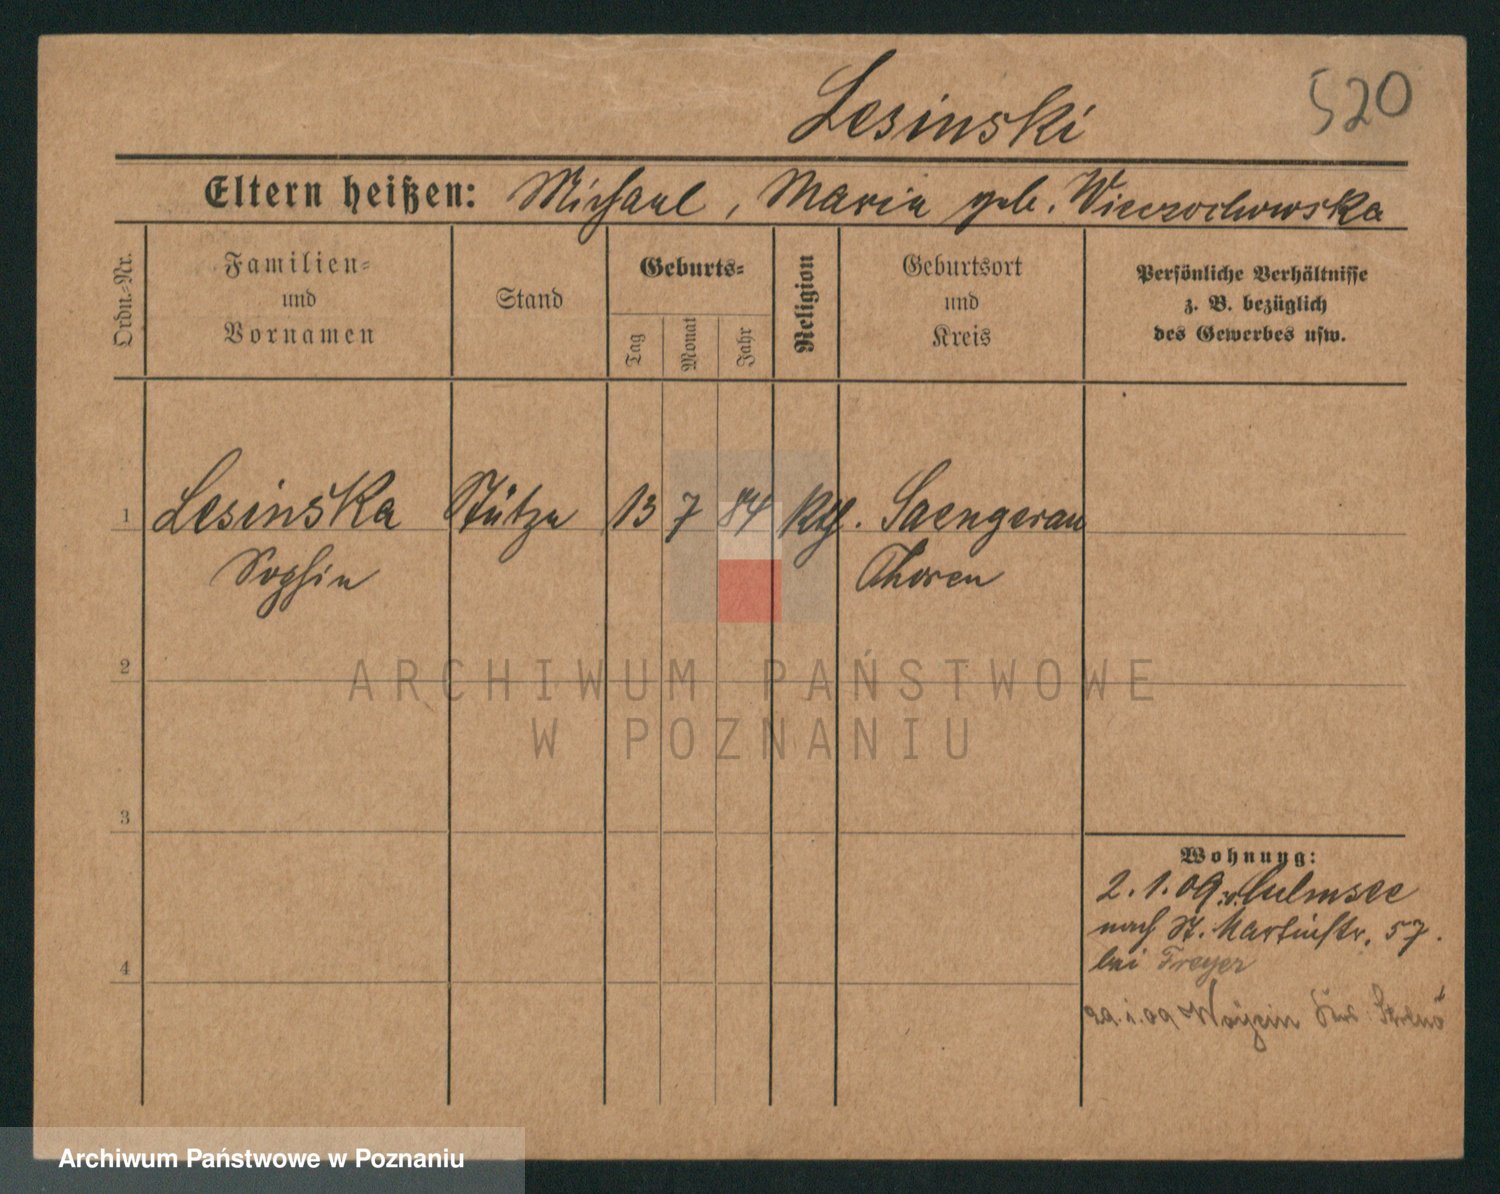 Lesinski
520
Eltern heißen: Michael, Maria geb. Wierzochowska
Ordn.-Nr.
Familien-
und
Vornamen
Stand
Geburts-
Tag
Monat
Jahr
Religion
Geburtsort
und
Kreis
Persönliche Verhältnisse
z. B. bezüglich
des Gewerbes usw.
1
Lesinska Stütze 13 7 84 Kth. Saengerau
Sophie Thoren
2
ARCHIWUM PAŃSTWOWE
W POZNANIU
3
Wohnung:
2.1.09 v. Culmsee
nach St. Martinstr. 57.
bei Freyer
4
29.1.09
Archiwum Państwowe w Poznaniu